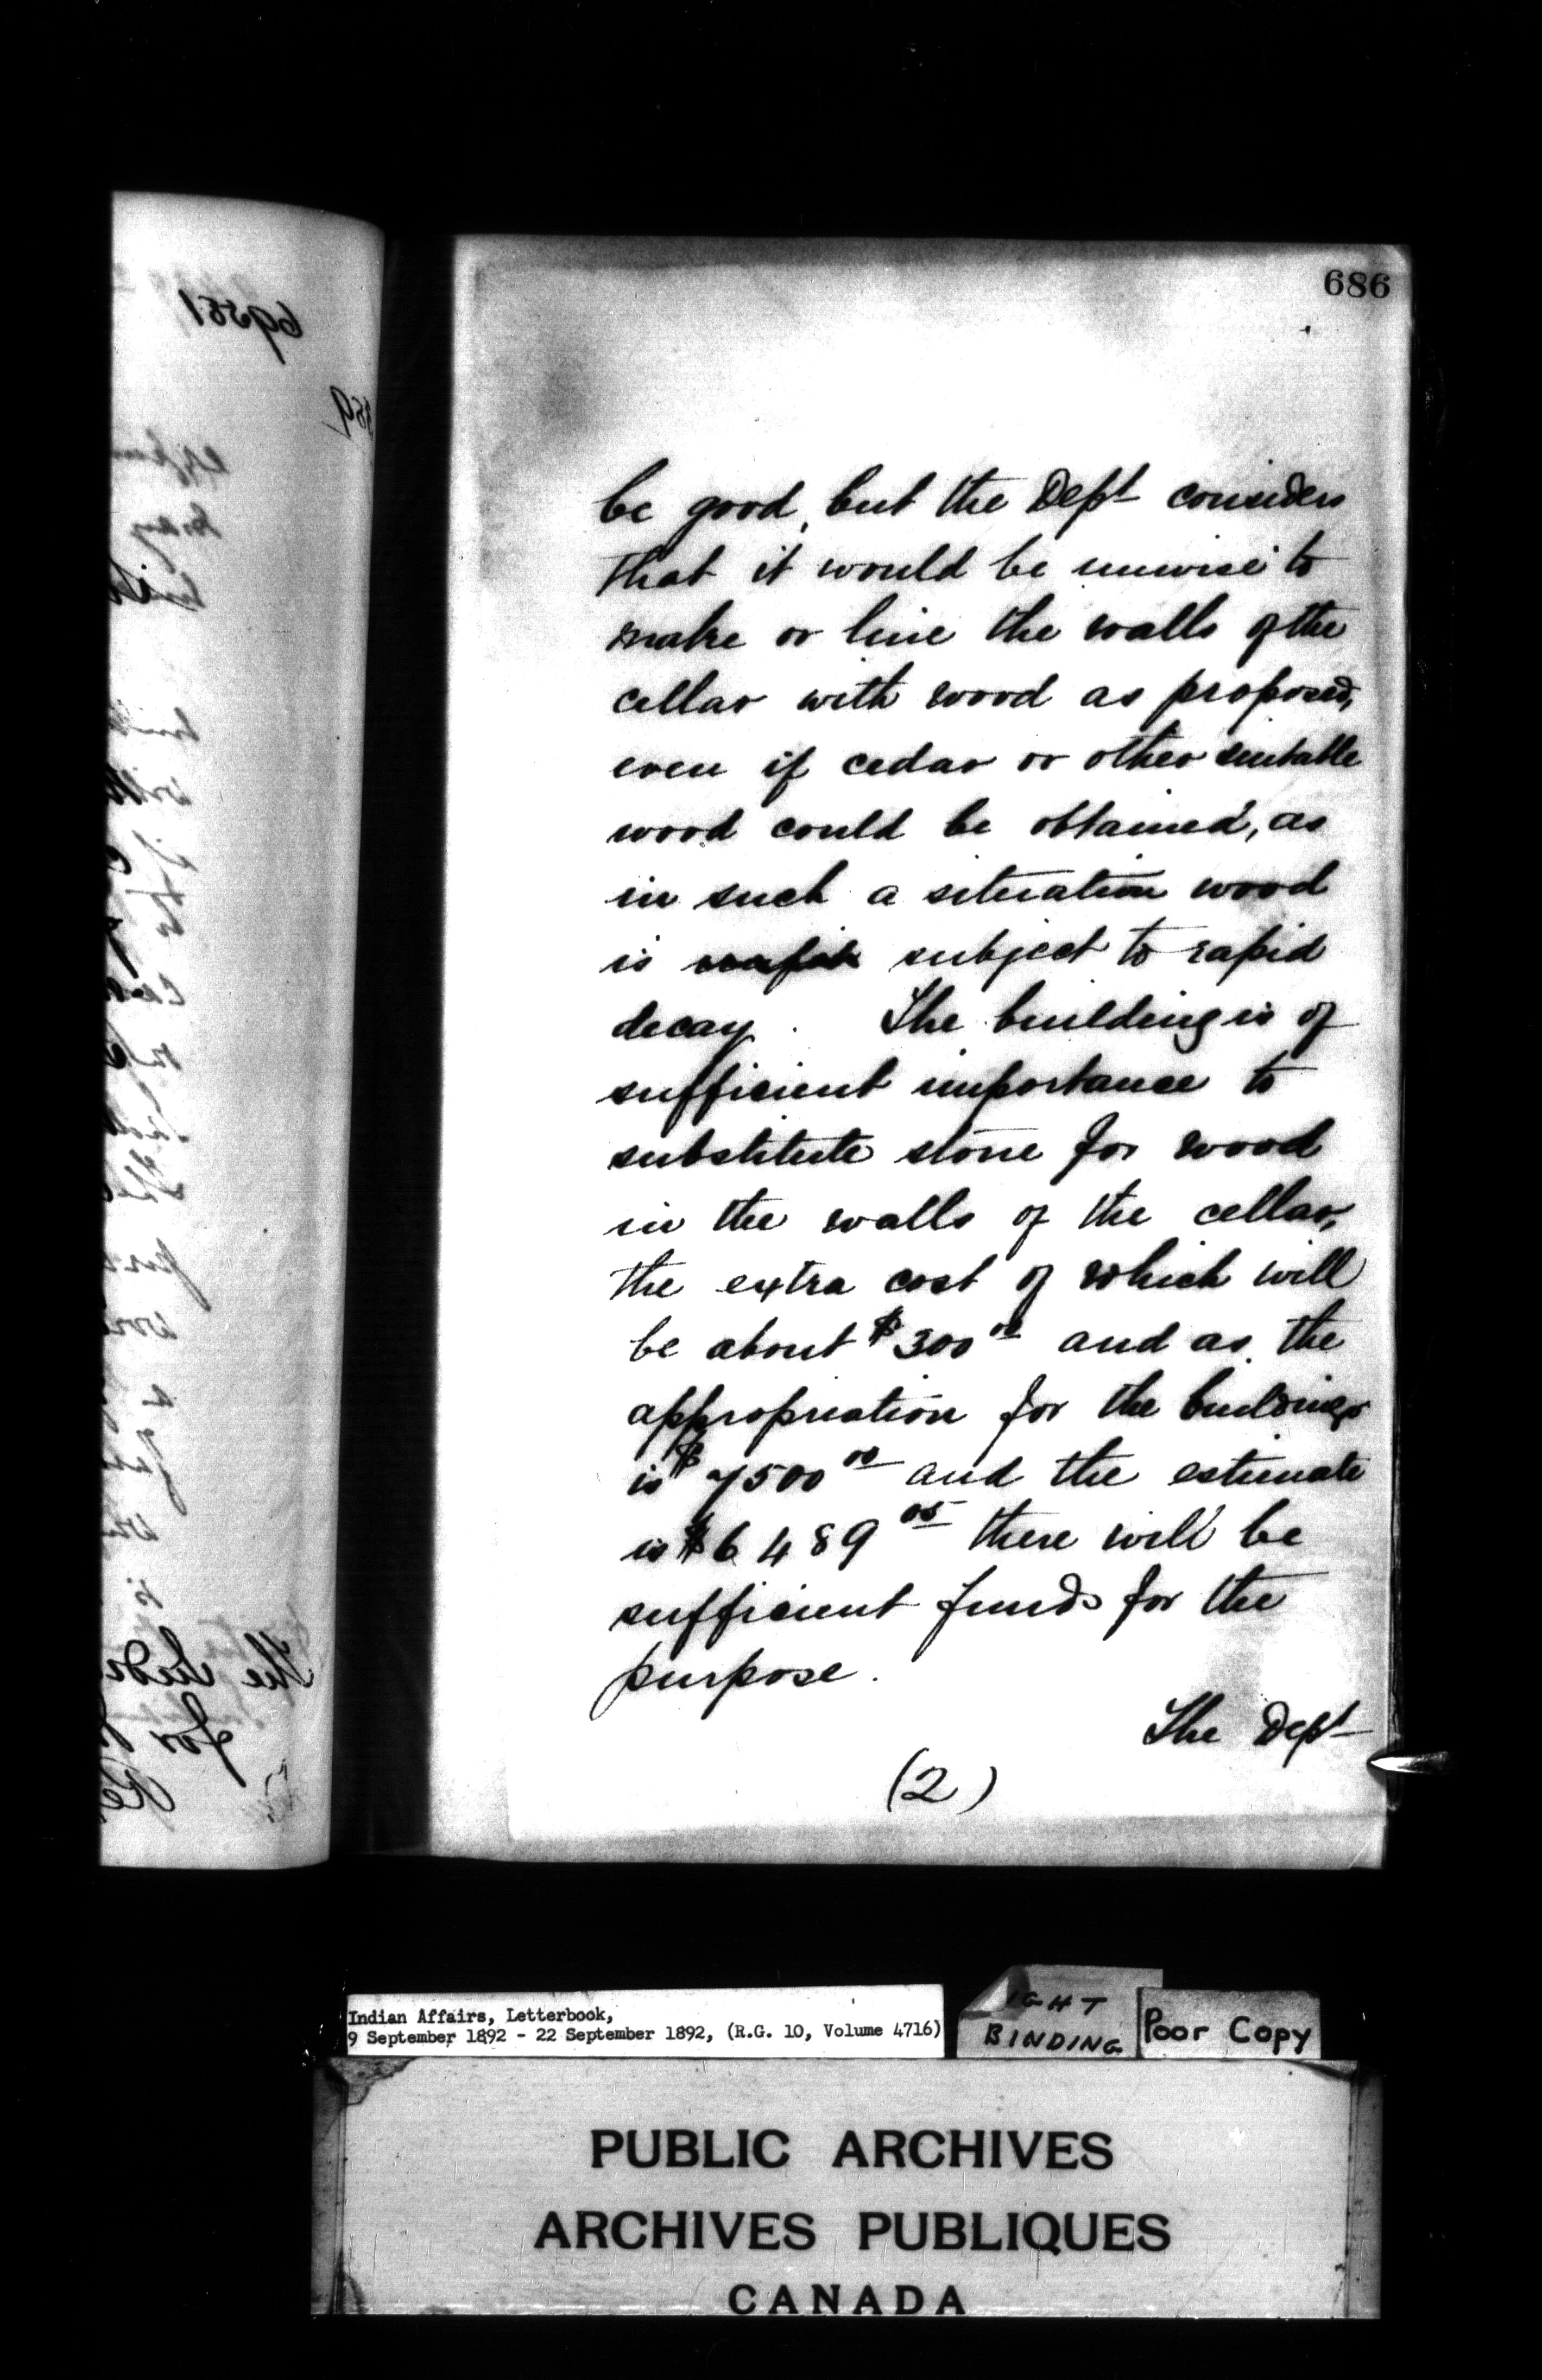 686
be good, but the Dept considers
that it would be unwise to
make or line the walls of the
cellar with wood as proposed,
even if cedar or other suitable
wood could be obtained, as
in such a situation wood
is subject to rapid
decay. The building is of
sufficient importance to
substitute stone for wood
in the walls of the cellar,
the extra cost of which will
be about $300 00 and as the
appropriation for the buildings
is $7500 00 and the estimate
is $6489 05 there will be
sufficient funds for the
purpose.
The Dept
(2)
69551
The
for
Indian Affairs, Letterbook,
9 September 1892 - 22 September 1892, (R.G. 10, Volume 4716)
IGHT
BINDING
Poor Copy
PUBLIC ARCHIVES
ARCHIVES PUBLIQUES
CANADA